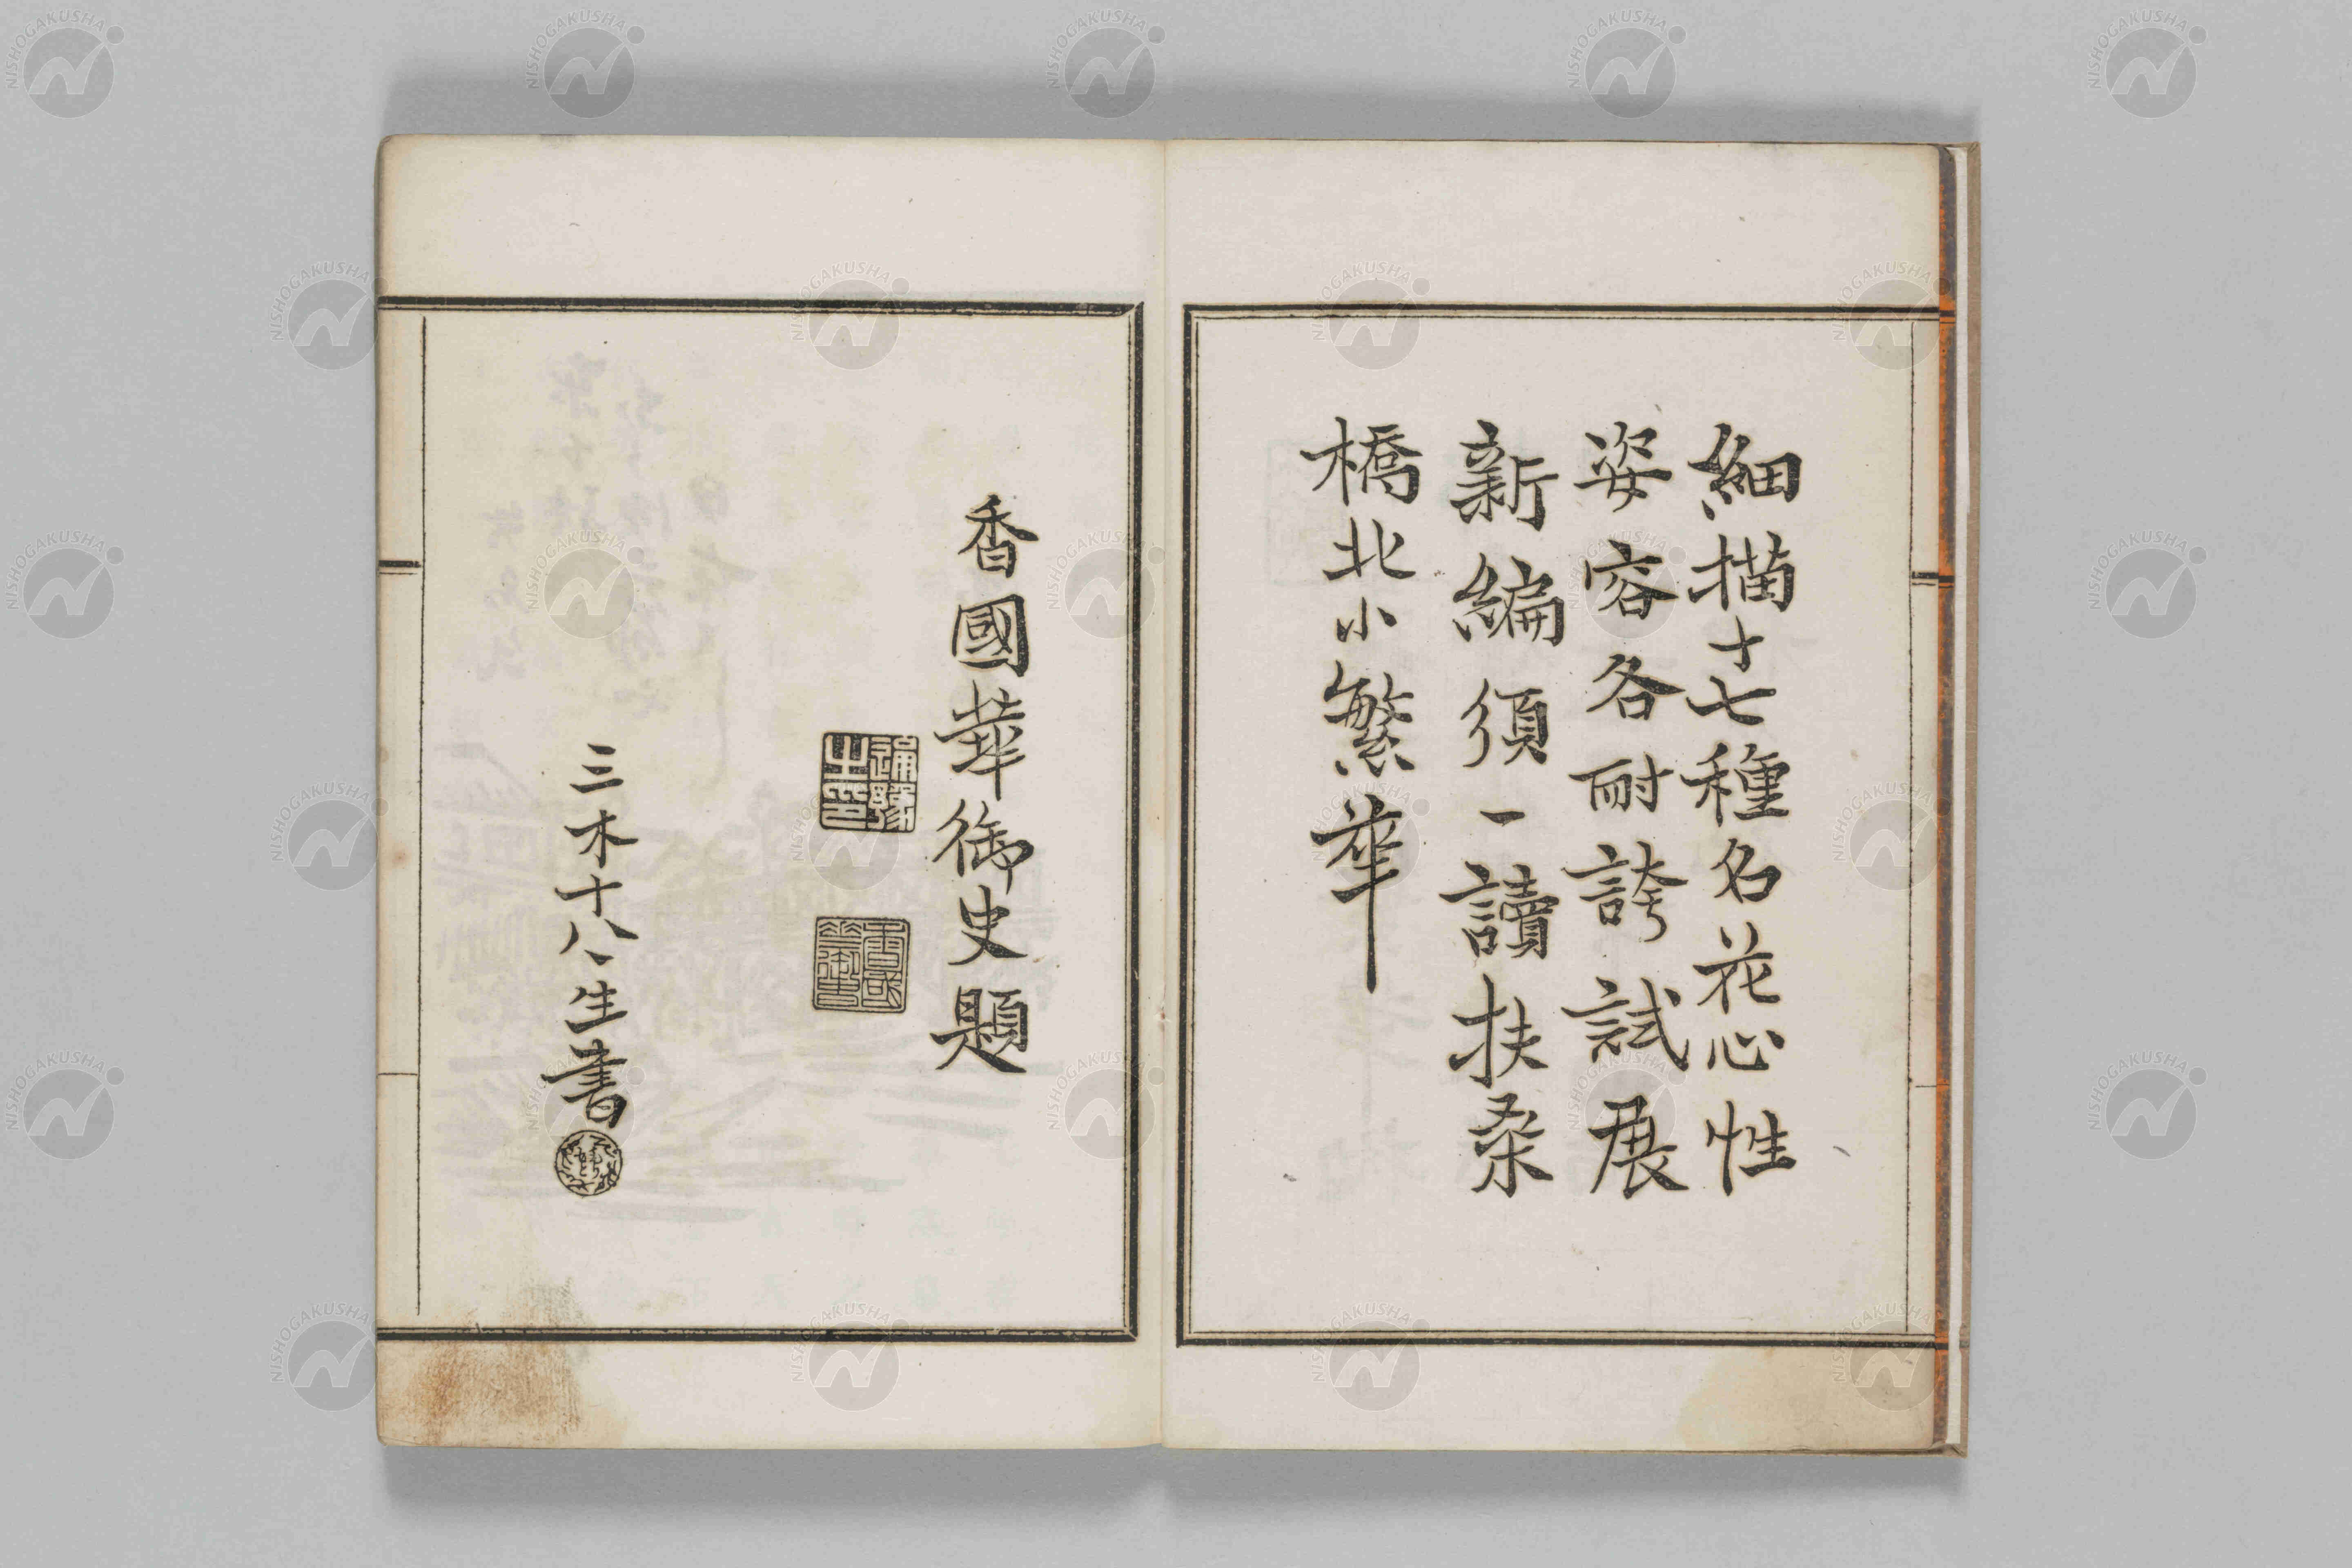 細描十七種名花心性
姿容各耐誇試展
新編須一讀扶桒
橋北小繁華
香國華御史題
三木十八生書
NISHOGAKUSHA